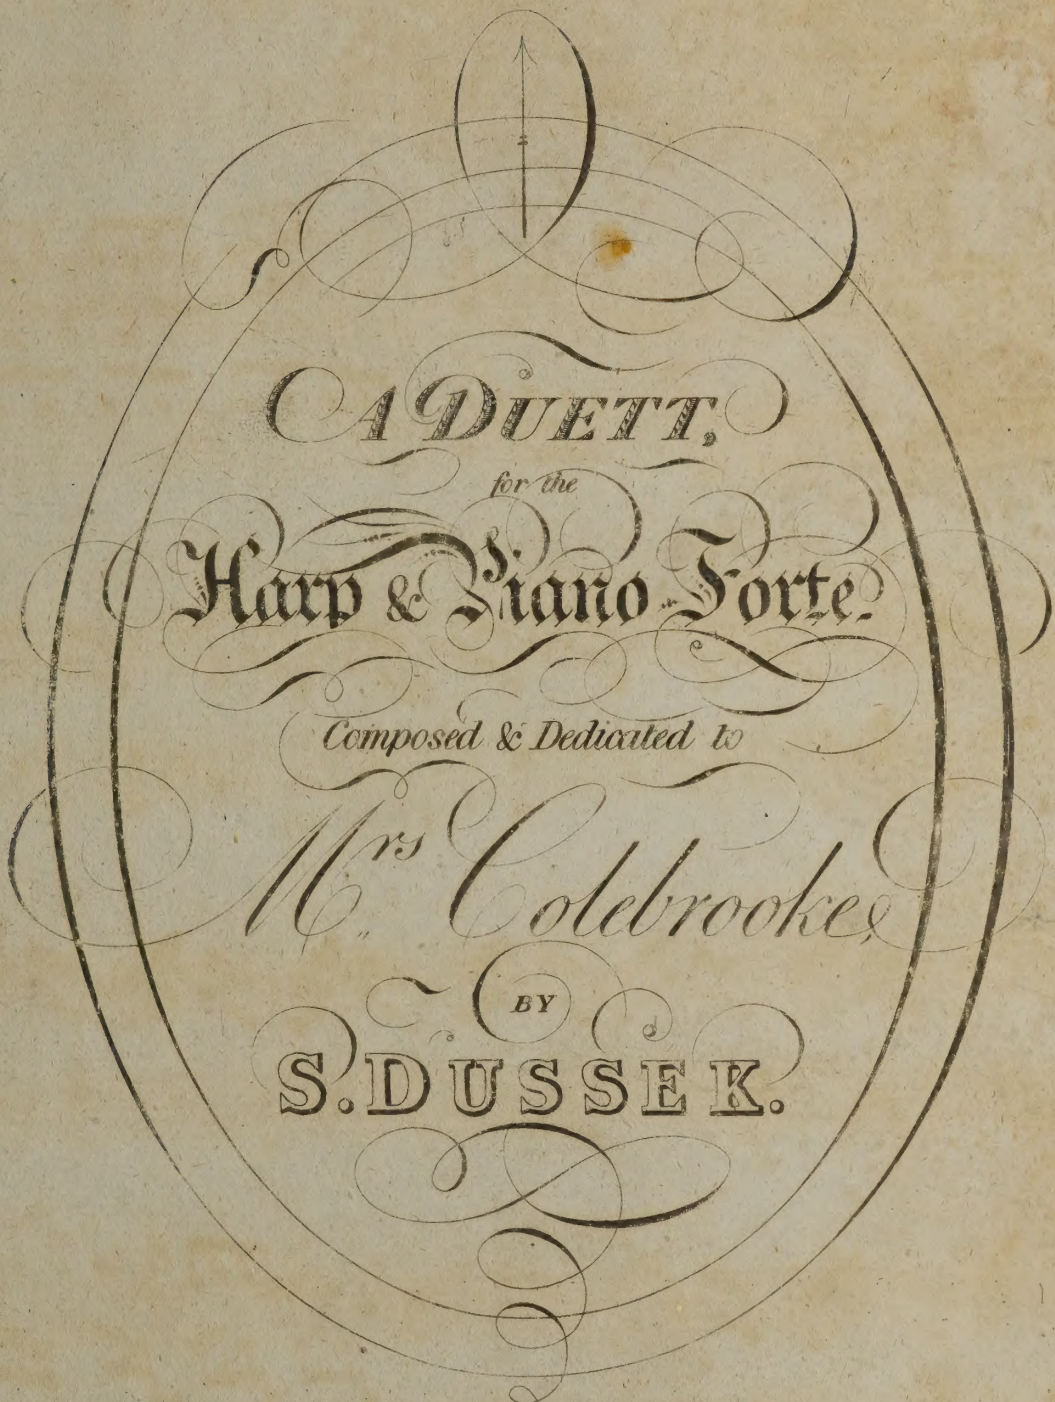 A DUETT,
for the
Harp & Piano Forte.
Composed & Dedicated to
Mrs Colebrooke,
BY
S. DUSSEK.